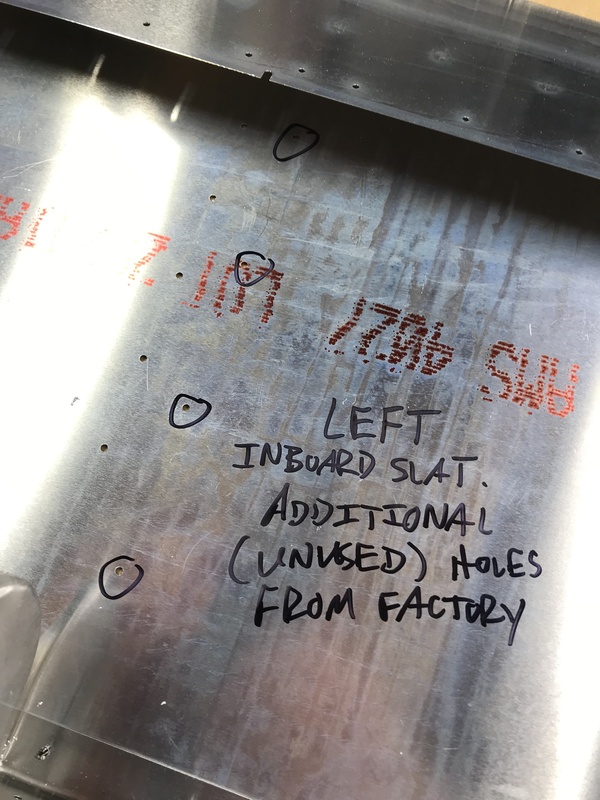 LEFT
INBOARD SLAT.
ADDITIONAL
(UNUSED) HOLES
FROM FACTORY